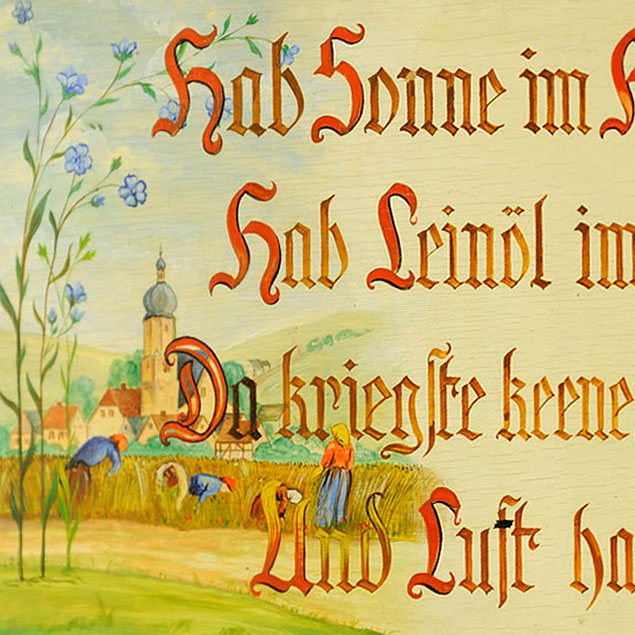 Hab Sonne im
Hab Leinöl im
Da kriegste keene
Und Luft ha